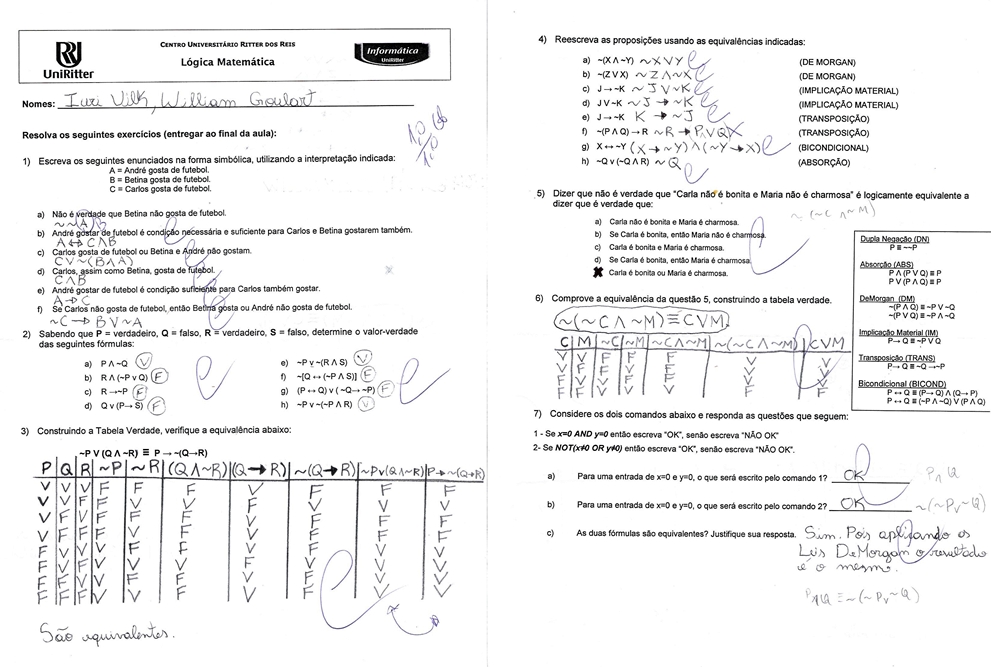 UniRitter
CENTRO UNIVERSITÁRIO RITTER DOS REIS
Lógica Matemática
Informática
UniRitter
Nomes: Iuri Vilk, William Goulart
Resolva os seguintes exercícios (entregar ao final da aula):
1) Escreva os seguintes enunciados na forma simbólica, utilizando a interpretação indicada:
A = André gosta de futebol.
B = Betina gosta de futebol.
C = Carlos gosta de futebol.
a) Não é verdade que Betina não gosta de futebol.
b) André gostar de futebol é condição necessária e suficiente para Carlos e Betina gostarem também.
A ↔ C ∧ B
c) Carlos gosta de futebol ou Betina e André não gostam.
C ∨ ~(B ∧ A)
d) Carlos, assim como Betina, gosta de futebol.
C ∧ B
e) André gostar de futebol é condição suficiente para Carlos também gostar.
A → C
f) Se Carlos não gosta de futebol, então Betina gosta ou André não gosta de futebol.
~C → B ∨ ~A
2) Sabendo que P = verdadeiro, Q = falso, R = verdadeiro, S = falso, determine o valor-verdade
das seguintes fórmulas:
a) P ∧ ~Q V
b) R ∧ (~P v Q) F
c) R → ~P F
d) Q v (P → S) F
e) ~P v ~(R ∧ S) V
f) ~[Q ↔ (~P ∧ S)] F
g) (P ↔ Q) v ( ~Q → ~P) F
h) ~P v ~(~P ∧ R) V
3) Construindo a Tabela Verdade, verifique a equivalência abaixo:
~P V (Q ∧ ~R) ≡ P → ~(Q→R)
P Q R ~P ~R (Q∧~R) (Q→R) ~(Q→R) ~P∨(Q∧~R) P→~(Q→R)
São equivalentes.
4) Reescreva as proposições usando as equivalências indicadas:
a) ~(X ∧ ~Y) ~X V Y (DE MORGAN)
b) ~(Z V X) ~Z ∧ ~X (DE MORGAN)
c) J → ~K ~J V ~K (IMPLICAÇÃO MATERIAL)
d) J V ~K ~J → ~K (IMPLICAÇÃO MATERIAL)
e) J → ~K K → ~J (TRANSPOSIÇÃO)
f) ~(P ∧ Q) → R ~R → P ∧ Q (TRANSPOSIÇÃO)
g) X ↔ ~Y (X → ~Y) ∧ (~Y → X) (BICONDICIONAL)
h) ~Q v (~Q ∧ R) ~Q (ABSORÇÃO)
5) Dizer que não é verdade que "Carla não é bonita e Maria não é charmosa" é logicamente equivalente a
dizer que é verdade que:
~(~C ∧ ~M)
a) Carla não é bonita e Maria é charmosa.
b) Se Carla é bonita, então Maria não é charmosa.
c) Carla é bonita e Maria é charmosa.
d) Se Carla não é bonita, então Maria é charmosa.
Carla é bonita ou Maria é charmosa.
Dupla Negação (DN)
P ≡ ~~P
Absorção (ABS)
P ∧ (P V Q) ≡ P
P V (P ∧ Q) ≡ P
DeMorgan (DM)
~(P ∧ Q) ≡ ~P V ~Q
~(P V Q) ≡ ~P ∧ ~Q
Implicação Material (IM)
P → Q ≡ ~P V Q
Transposição (TRANS)
P → Q ≡ ~Q → ~P
Bicondicional (BICOND)
P ↔ Q ≡ (P → Q) ∧ (Q → P)
P ↔ Q ≡ (~P ∧ ~Q) V (P ∧ Q)
6) Comprove a equivalência da questão 5, construindo a tabela verdade.
~(~C ∧ ~M) ≡ C V M
C M ~C ~M ~C∧~M ~(~C∧~M) CVM
V V F F F V V
V F F V F V V
F V V F F V V
7) Considere os dois comandos abaixo e responda as questões que seguem:
1 - Se x=0 AND y=0 então escreva "OK", senão escreva "NÃO OK"
2- Se NOT(x≠0 OR y≠0) então escreva "OK", senão escreva "NÃO OK".
a) Para uma entrada de x=0 e y=0, o que será escrito pelo comando 1? OK P ∧ Q
b) Para uma entrada de x=0 e y=0, o que será escrito pelo comando 2? OK ~(~P v ~Q)
c) As duas fórmulas são equivalentes? Justifique sua resposta. Sim. Pois aplicando as
Leis DeMorgam o resultado
é o mesmo.
P ∧ Q ≡ ~(~P v ~Q)